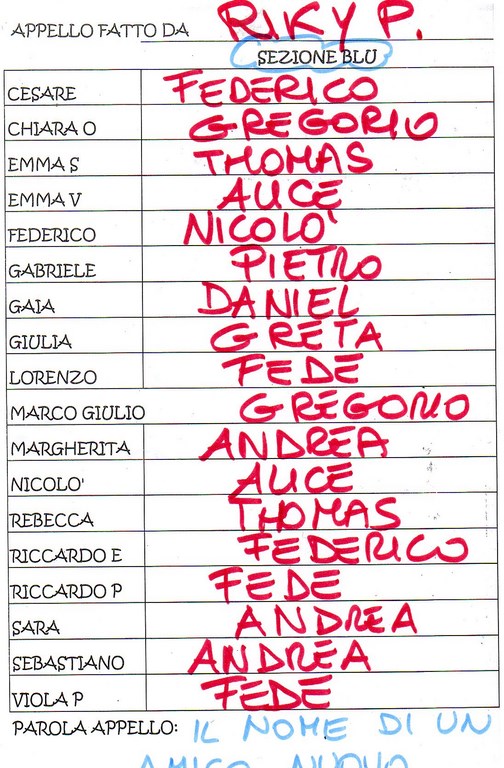 APPELLO FATTO DA RIKY P.
SEZIONE BLU
CESARE FEDERICO
CHIARA O GREGORIO
EMMA S THOMAS
EMMA V ALICE
FEDERICO NICOLO'
GABRIELE PIETRO
GAIA DANIEL
GIULIA GRETA
LORENZO FEDE
MARCO GIULIO GREGORIO
MARGHERITA ANDREA
NICOLO' ALICE
REBECCA THOMAS
RICCARDO E FEDERICO
RICCARDO P FEDE
SARA ANDREA
SEBASTIANO ANDREA
VIOLA P FEDE
PAROLA APPELLO: IL NOME DI UN
AMICO NUOVO